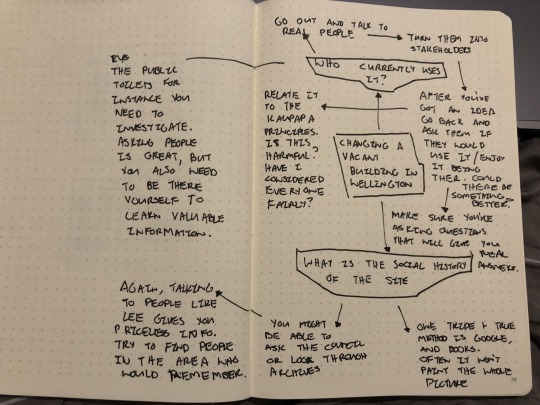 GO OUT AND TALK TO
REAL PEOPLE
TURN THEM INTO
STAKEHOLDERS
WHO CURRENTLY USES
IT?
AFTER YOU'VE
GOT AN IDEA
GO BACK AND
ASK THEM IF
THEY WOULD
USE IT / ENJOY
IT BEING
THER. COULD
THERE BE
SOMETHING
BETTER.
MAKE SURE YOU'RE
ASKING QUESTIONS
THAT WILL GIVE YOU
REAL
ANSWERS.
RELATE IT
TO THE
KAUPAPA
PRINCIPLES.
IS THIS
HARMFUL?
HAVE I
CONSIDERED
EVERYONE
FAIRLY?
CHANGING A
VACANT
BUILDING IN
WELLINGTON
THE PUBLIC
TOILETS FOR
INSTANCE YOU
NEED TO
INVESTIGATE.
ASKING PEOPLE
IS GREAT, BUT
YOU ALSO NEED
TO BE THERE
YOURSELF TO
LEARN VALUABLE
INFORMATION.
WHAT IS THE SOCIAL HISTORY
OF THE SITE
YOU MIGHT
BE ABLE TO
ASK THE COUNCIL
OR LOOK THROUGH
ARCHIVES
ONE TRIED & TRUE
METHOD IS GOOGLE,
AND BOOKS.
OFTEN IT WON'T
PAINT THE WHOLE
PICTURE
AGAIN, TALKING
TO PEOPLE LIKE
LEE GIVES YOU
PRICELESS INFO.
TRY TO FIND PEOPLE
IN THE AREA WHO
WOULD REMEMBER.